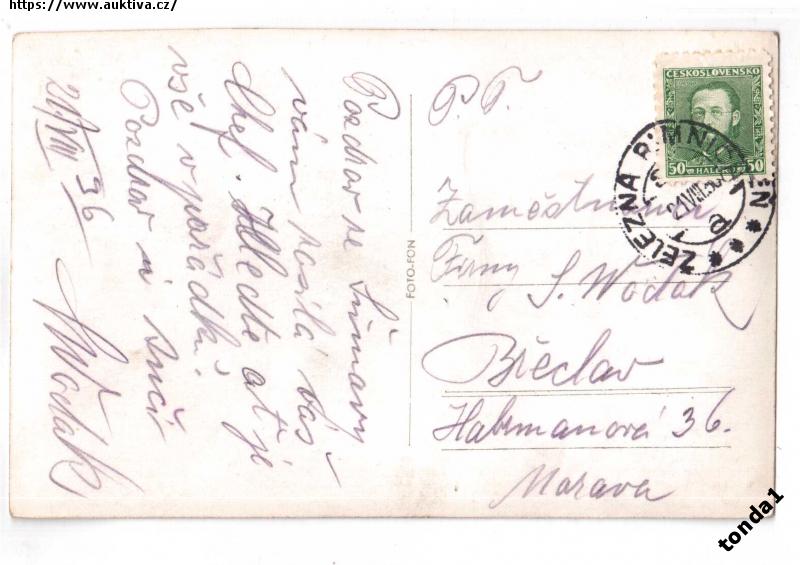 https://www.auktiva.cz/
21/VIII 36
Pozdrav ze Šumavy
vám posílá váš
Chef. Hleďte ať je
vše v pořádku.
Pozdrav u
SWodak
FOTO-FON
P. T.
Zaměstnanci
Firmy S. Wodak
Břeclav
Habrmanova 36.
Morava
ČESKOSLOVENSKO
50 HALÉŘŮ 50
ŽELEZNÁ RUDA
tonda1